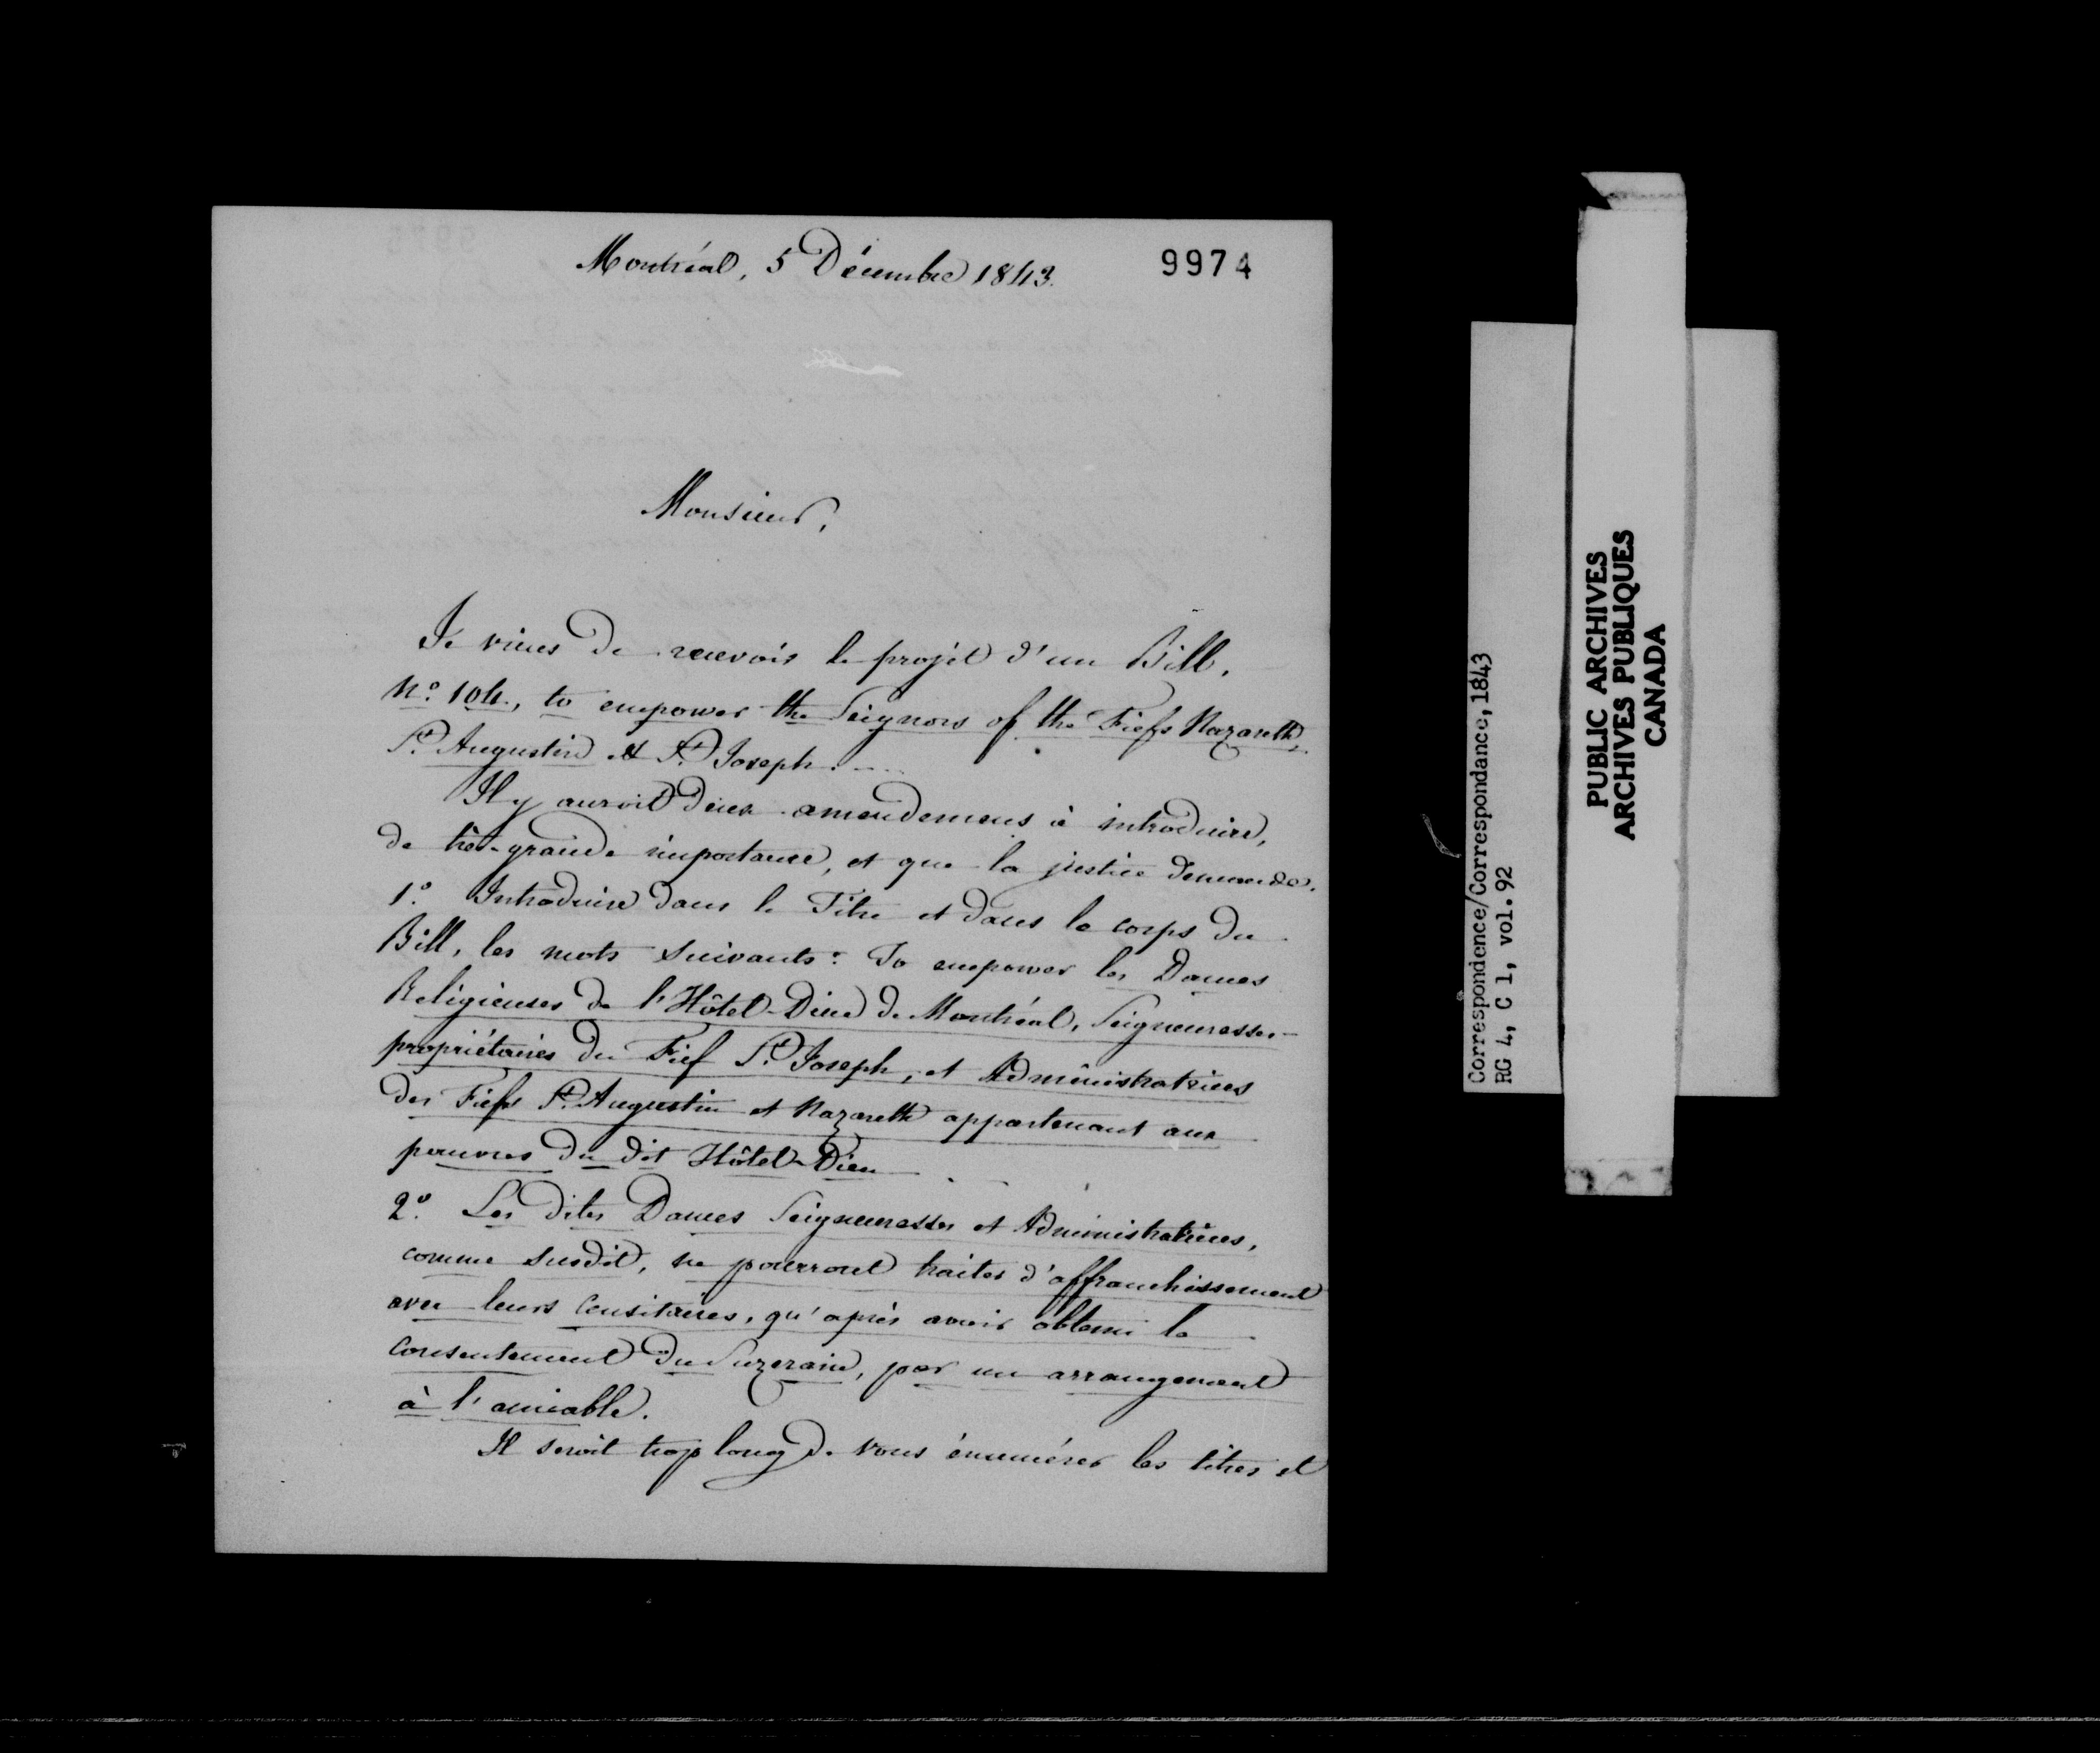 Montréal, 5 Décembre 1843.
9974
Monsieur,
Je viens de recevoir le projet d'un Bill,
No. 104., to empower the Seignors of the Fiefs Nazareth,
St. Augustin & St. Joseph. ....
Il y auroit deux amendemens à introduire,
de très-grande importance, et que la justice demande.
1o. Introduire dans le Titre et dans le corps du
Bill, les mots suivants: To empower les Dames
Religieuses de l'Hôtel-Dieu de Montréal, Seigneuresses-
propriétaires du Fief St. Joseph, et Administratrices
des Fiefs St. Augustin et Nazareth appartenant aux
pauvres du dit Hôtel-Dieu
2o. Les dites Dames Seigneuresses et Administratrices,
comme susdit, ne pourront traiter d'affranchissement
avec leurs Censitaires, qu'après avoir obtenu le
Consentement du Suzerain, par un arrangement
à l'amiable.
Il seroit trop long de vous énumérer les titres et
Correspondence/Correspondance, 1843
RG 4, C 1, vol. 92
PUBLIC ARCHIVES
ARCHIVES PUBLIQUES
CANADA